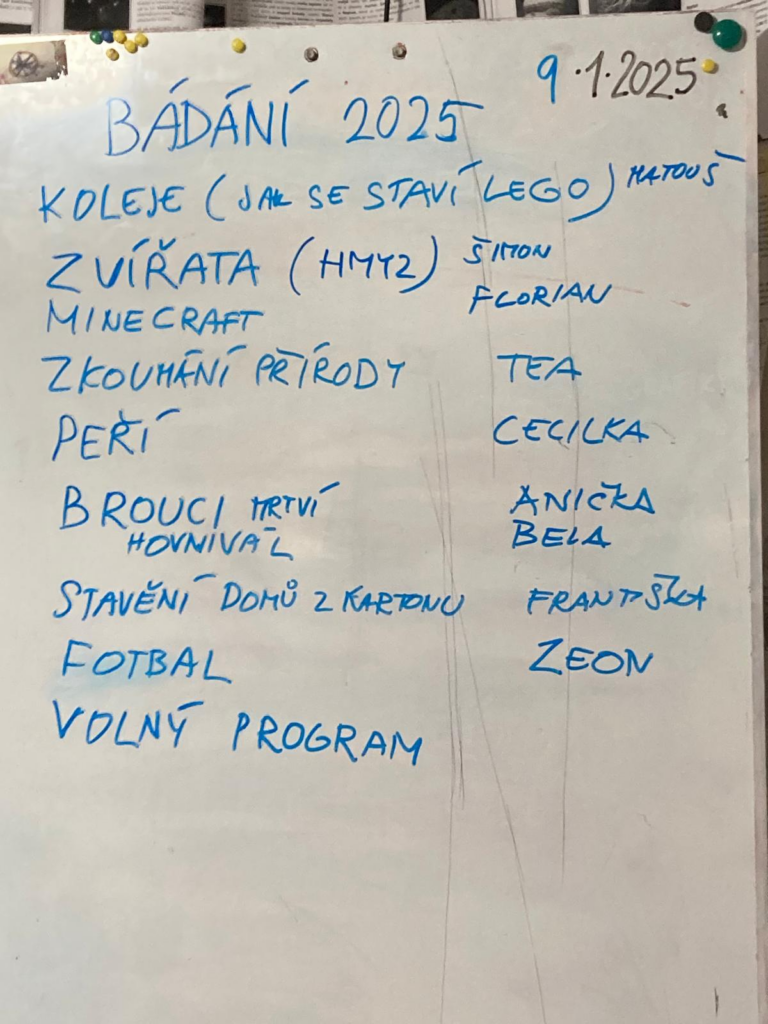 9.1.2025
BÁDÁNÍ 2025
KOLEJE (JAK SE STAVÍ LEGO) MATOUŠ
ZVÍŘATA (HMYZ) ŠIMON
FLORIAN
MINECRAFT
ZKOUMÁNÍ PŘÍRODY TEA
PEŘÍ CECILKA
BROUCI MRTVÍ ANIČKA
HOVNIVÁL BELA
STAVĚNÍ DOMŮ Z KARTONU FRANTIŠKA
FOTBAL ZEON
VOLNÝ PROGRAM